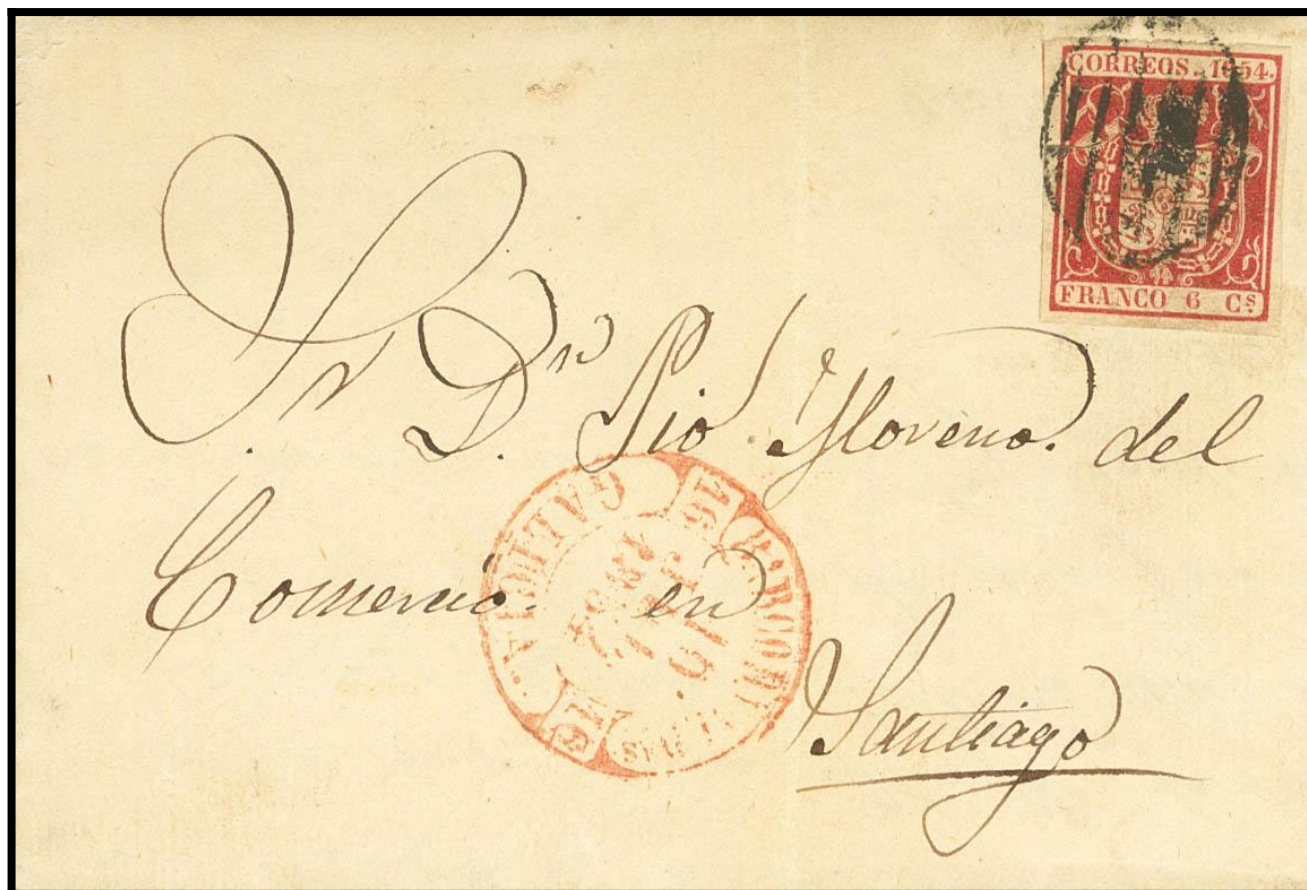 CORREOS. 1854.
FRANCO 6 Cs
Sr. Dn. Pio Moreno. del
Comercio. en
Santiago
16
GALICIA.